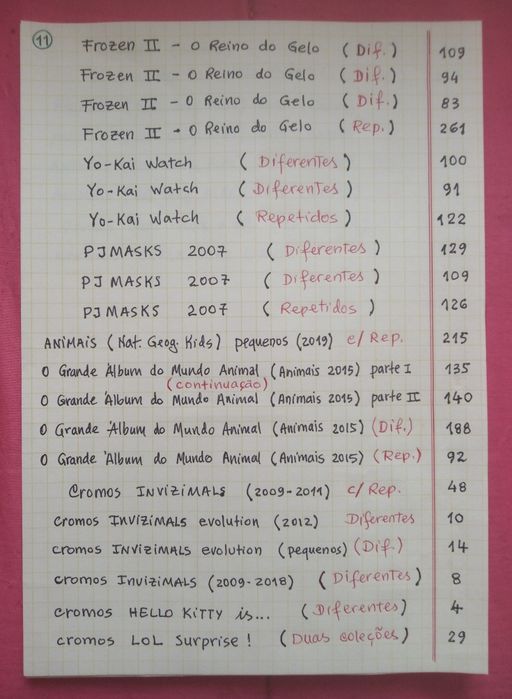 11
Frozen II - O Reino do Gelo (Dif.) 109
Frozen II - O Reino do Gelo (Dif.) 94
Frozen II - O Reino do Gelo (Dif.) 83
Frozen II - O Reino do Gelo (Rep.) 261
Yo-Kai Watch (Diferentes) 100
Yo-Kai Watch (Diferentes) 91
Yo-Kai Watch (Repetidos) 122
PJMASKS 2007 (Diferentes) 129
PJ MASKS 2007 (Diferentes) 109
PJ MASKS 2007 (Repetidos) 126
ANIMAIS (Nat. Geog. Kids) pequenos (2019) c/ Rep. 215
O Grande Álbum do Mundo Animal (Animais 2015) parte I 135
(continuação)
O Grande Álbum do Mundo Animal (Animais 2015) parte II 140
O Grande Álbum do Mundo Animal (Animais 2015) (Dif.) 188
O Grande Álbum do Mundo Animal (Animais 2015) (Rep.) 92
Cromos INVIZIMALS (2009-2011) c/ Rep. 48
cromos INVIZIMALS evolution (2012) Diferentes 10
cromos INVIZIMALS evolution (pequenos) (Dif.) 14
cromos INVIZIMALS (2009-2018) (Diferentes) 8
cromos HELLO KITTY is... (Diferentes) 4
cromos LOL Surprise! (Duas coleções) 29